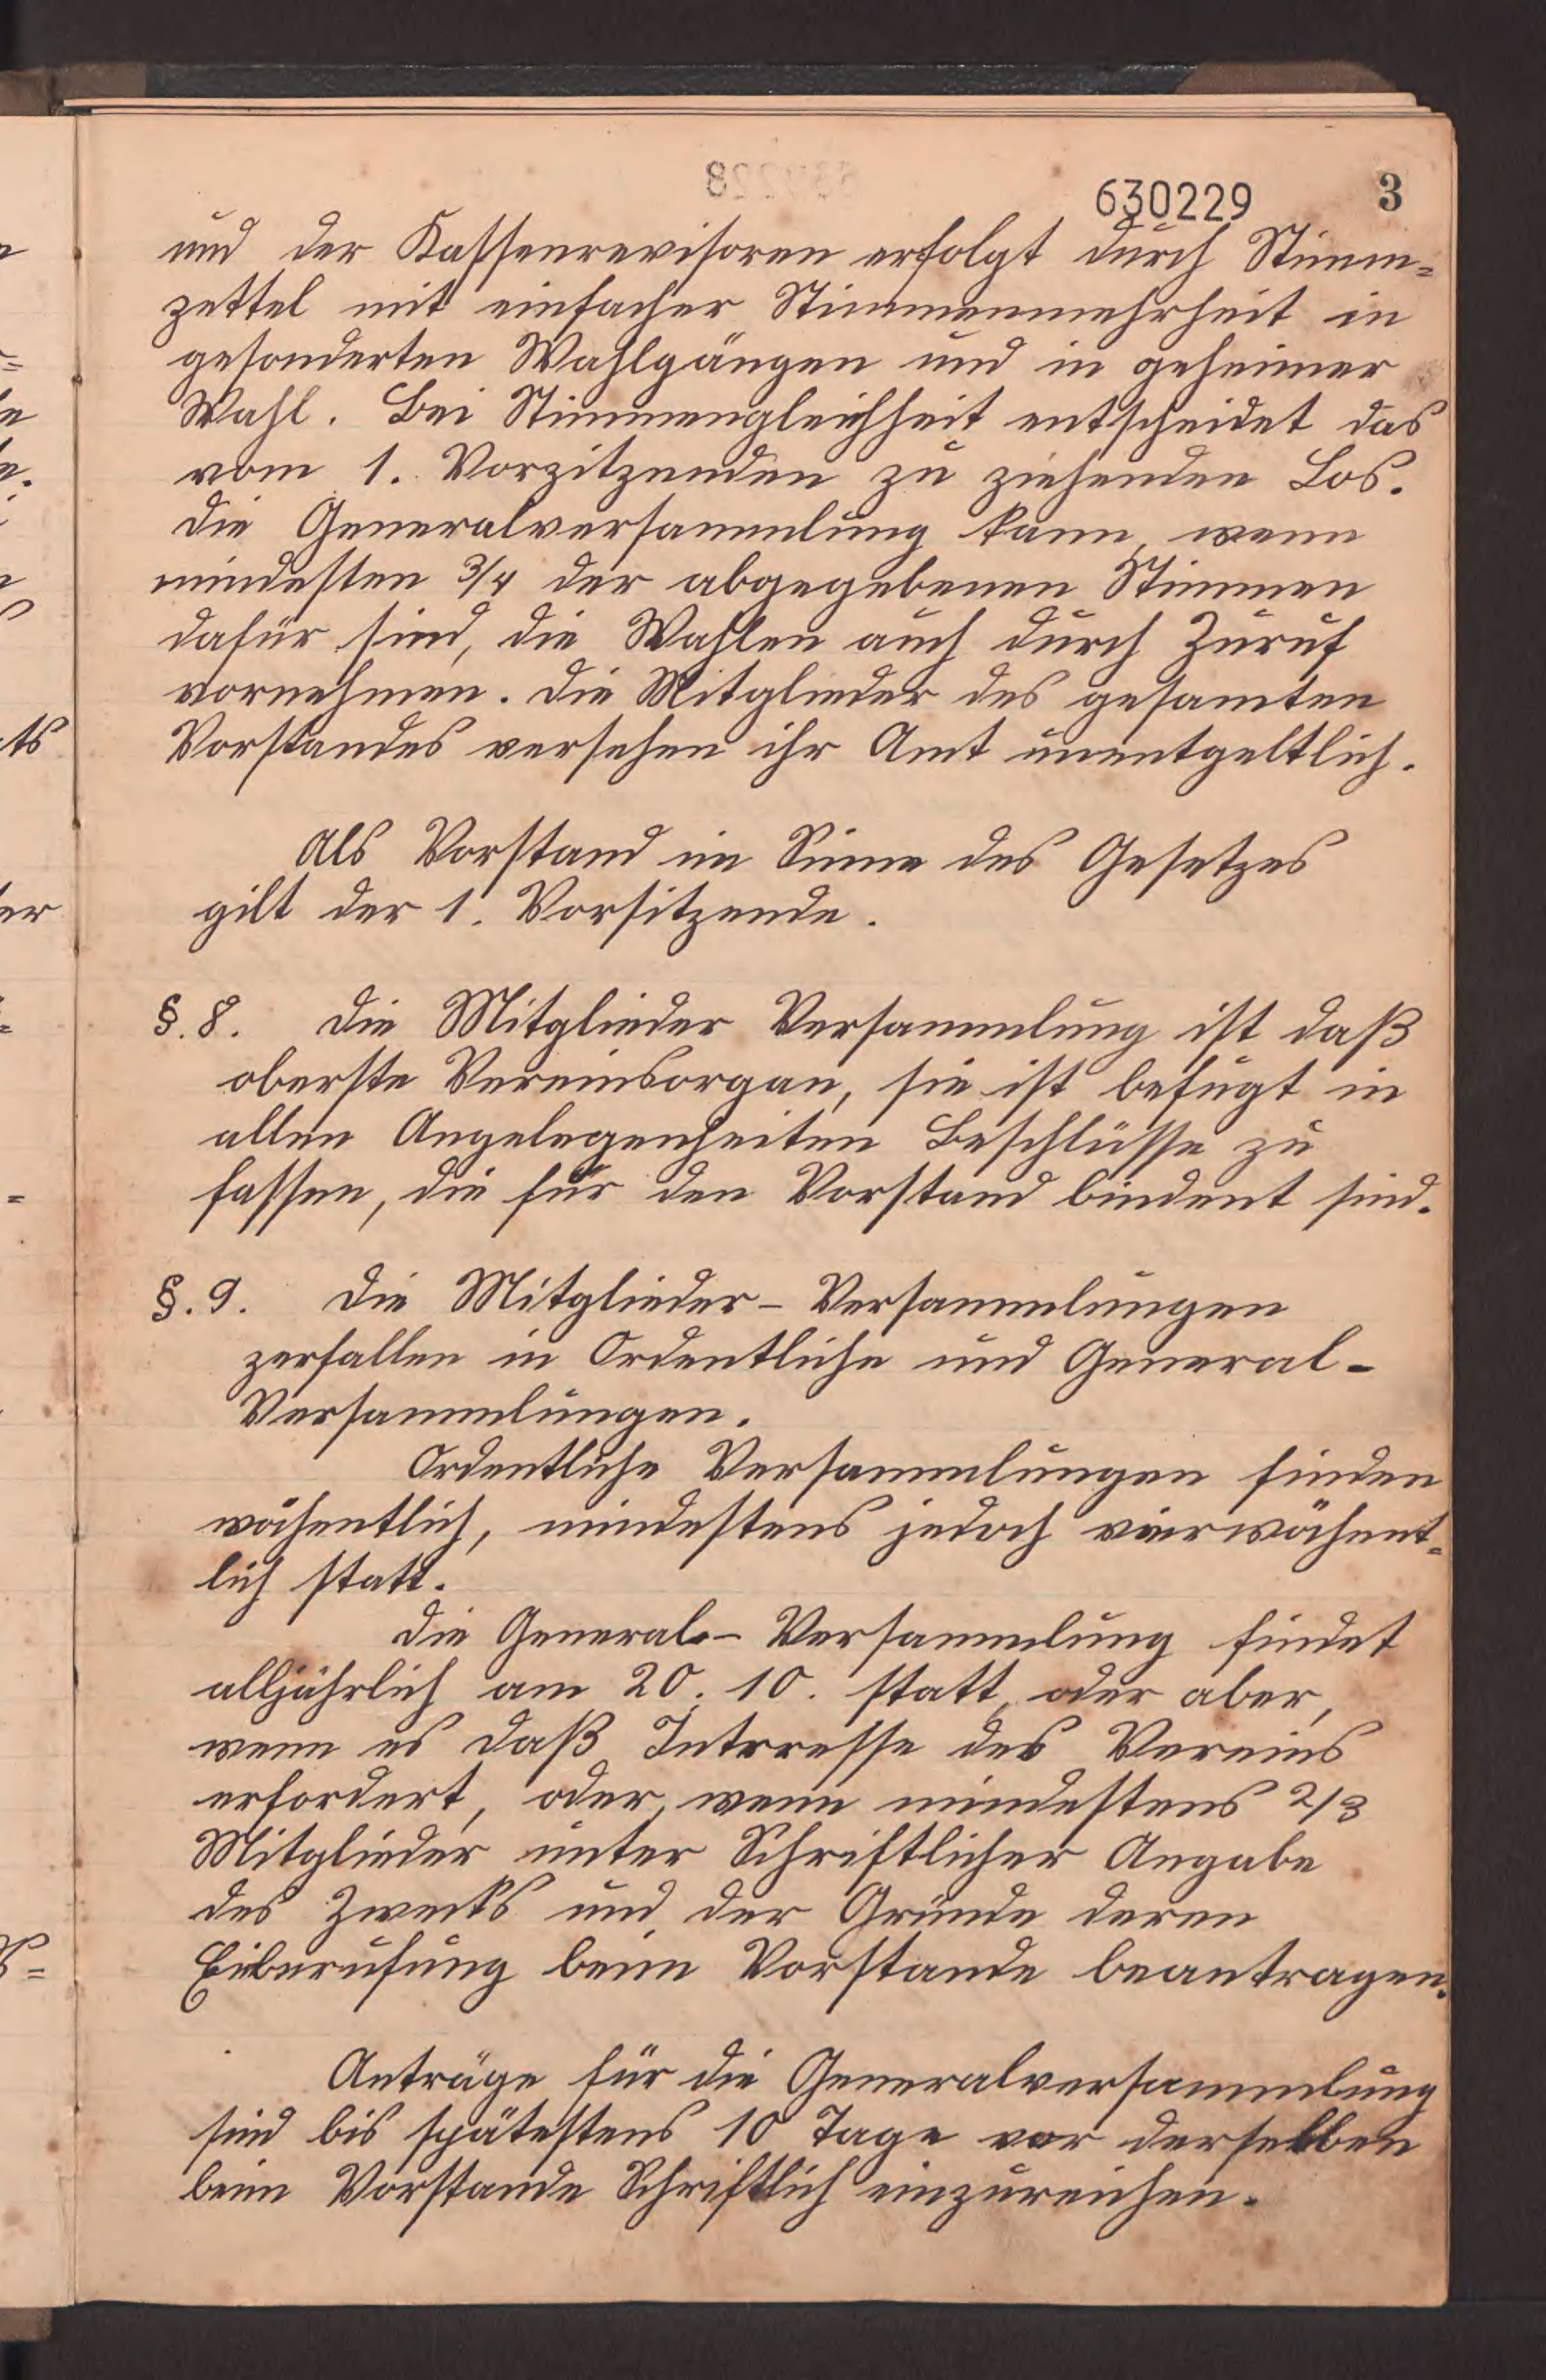 630229 3
und der Kassenrevisoren erfolgt durch Stimm=
zettel mit einfacher Stimmenmehrheit in
gesonderten Wahlgängen und in geheimer
Wahl. Bei Stimmengleichheit entscheidet das
vom 1. Vorzitzenden zu ziehenden Los.
Die Generalversammlung kann, wenn
mindesten 3/4 der abgegebenen Stimmen
dafür sind, die Wahlen auch durch Zuruf
vornehmen. Die Mitglieder des gesamten
Vorstandes versehen ihr Amt unentgeltlich.
Als Vorstand im Sinne des Gesetzes
gilt der 1. Vorsitzende.
§. 8. Die Mitglieder Versammlung ist daß
oberste Vereinsorgan, sie ist befugt in
allen Angelegenheiten Beschlüsse zu
fassen, die für den Vorstand bindent sind.
§. 9. Die Mitglieder-Versammlungen
zerfallen in Ordentliche und General-
Versammlungen.
Ordentliche Versammlungen finden
wöchentlich, mindestens jedoch vierwöchent=
lich statt.
Die General-Versammlung findet
alljährlich am 20. 10. statt, oder aber,
wenn es daß Intresse des Vereins
erfordert, oder, wenn mindestens 2/3
Mitglieder unter Schriftlicher Angabe
des Zwecks und der Gründe deren
Einberufung beim Vorstande beantragen.
Anträge für die Generalversammlung
sind bis spätestens 10 Tage vor derselben
beim Vorstande Schriftlich einzureichen.